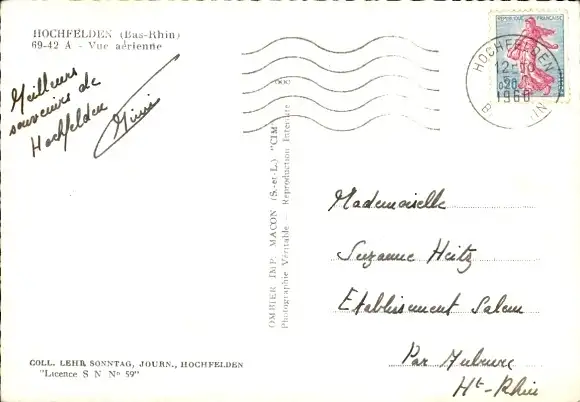 HOCHFELDEN (Bas-Rhin)
69-42 A - Vue aérienne
Meilleurs
souvenirs de
Hochfelden
Mimi
REPUBLIQUE FRANÇAISE
0,20
HOCHFELDEN
1960
OMBIER IMP. MACON (S.-et-L.) "CIM"
Photographie Véritable — Reproduction Interdite
Mademoiselle
Suzanne Heitz
Etablissement Salem
Par
Ht-Rhin
COLL. LEHR SONNTAG, JOURN., HOCHFELDEN
"Licence S N Nº 59"